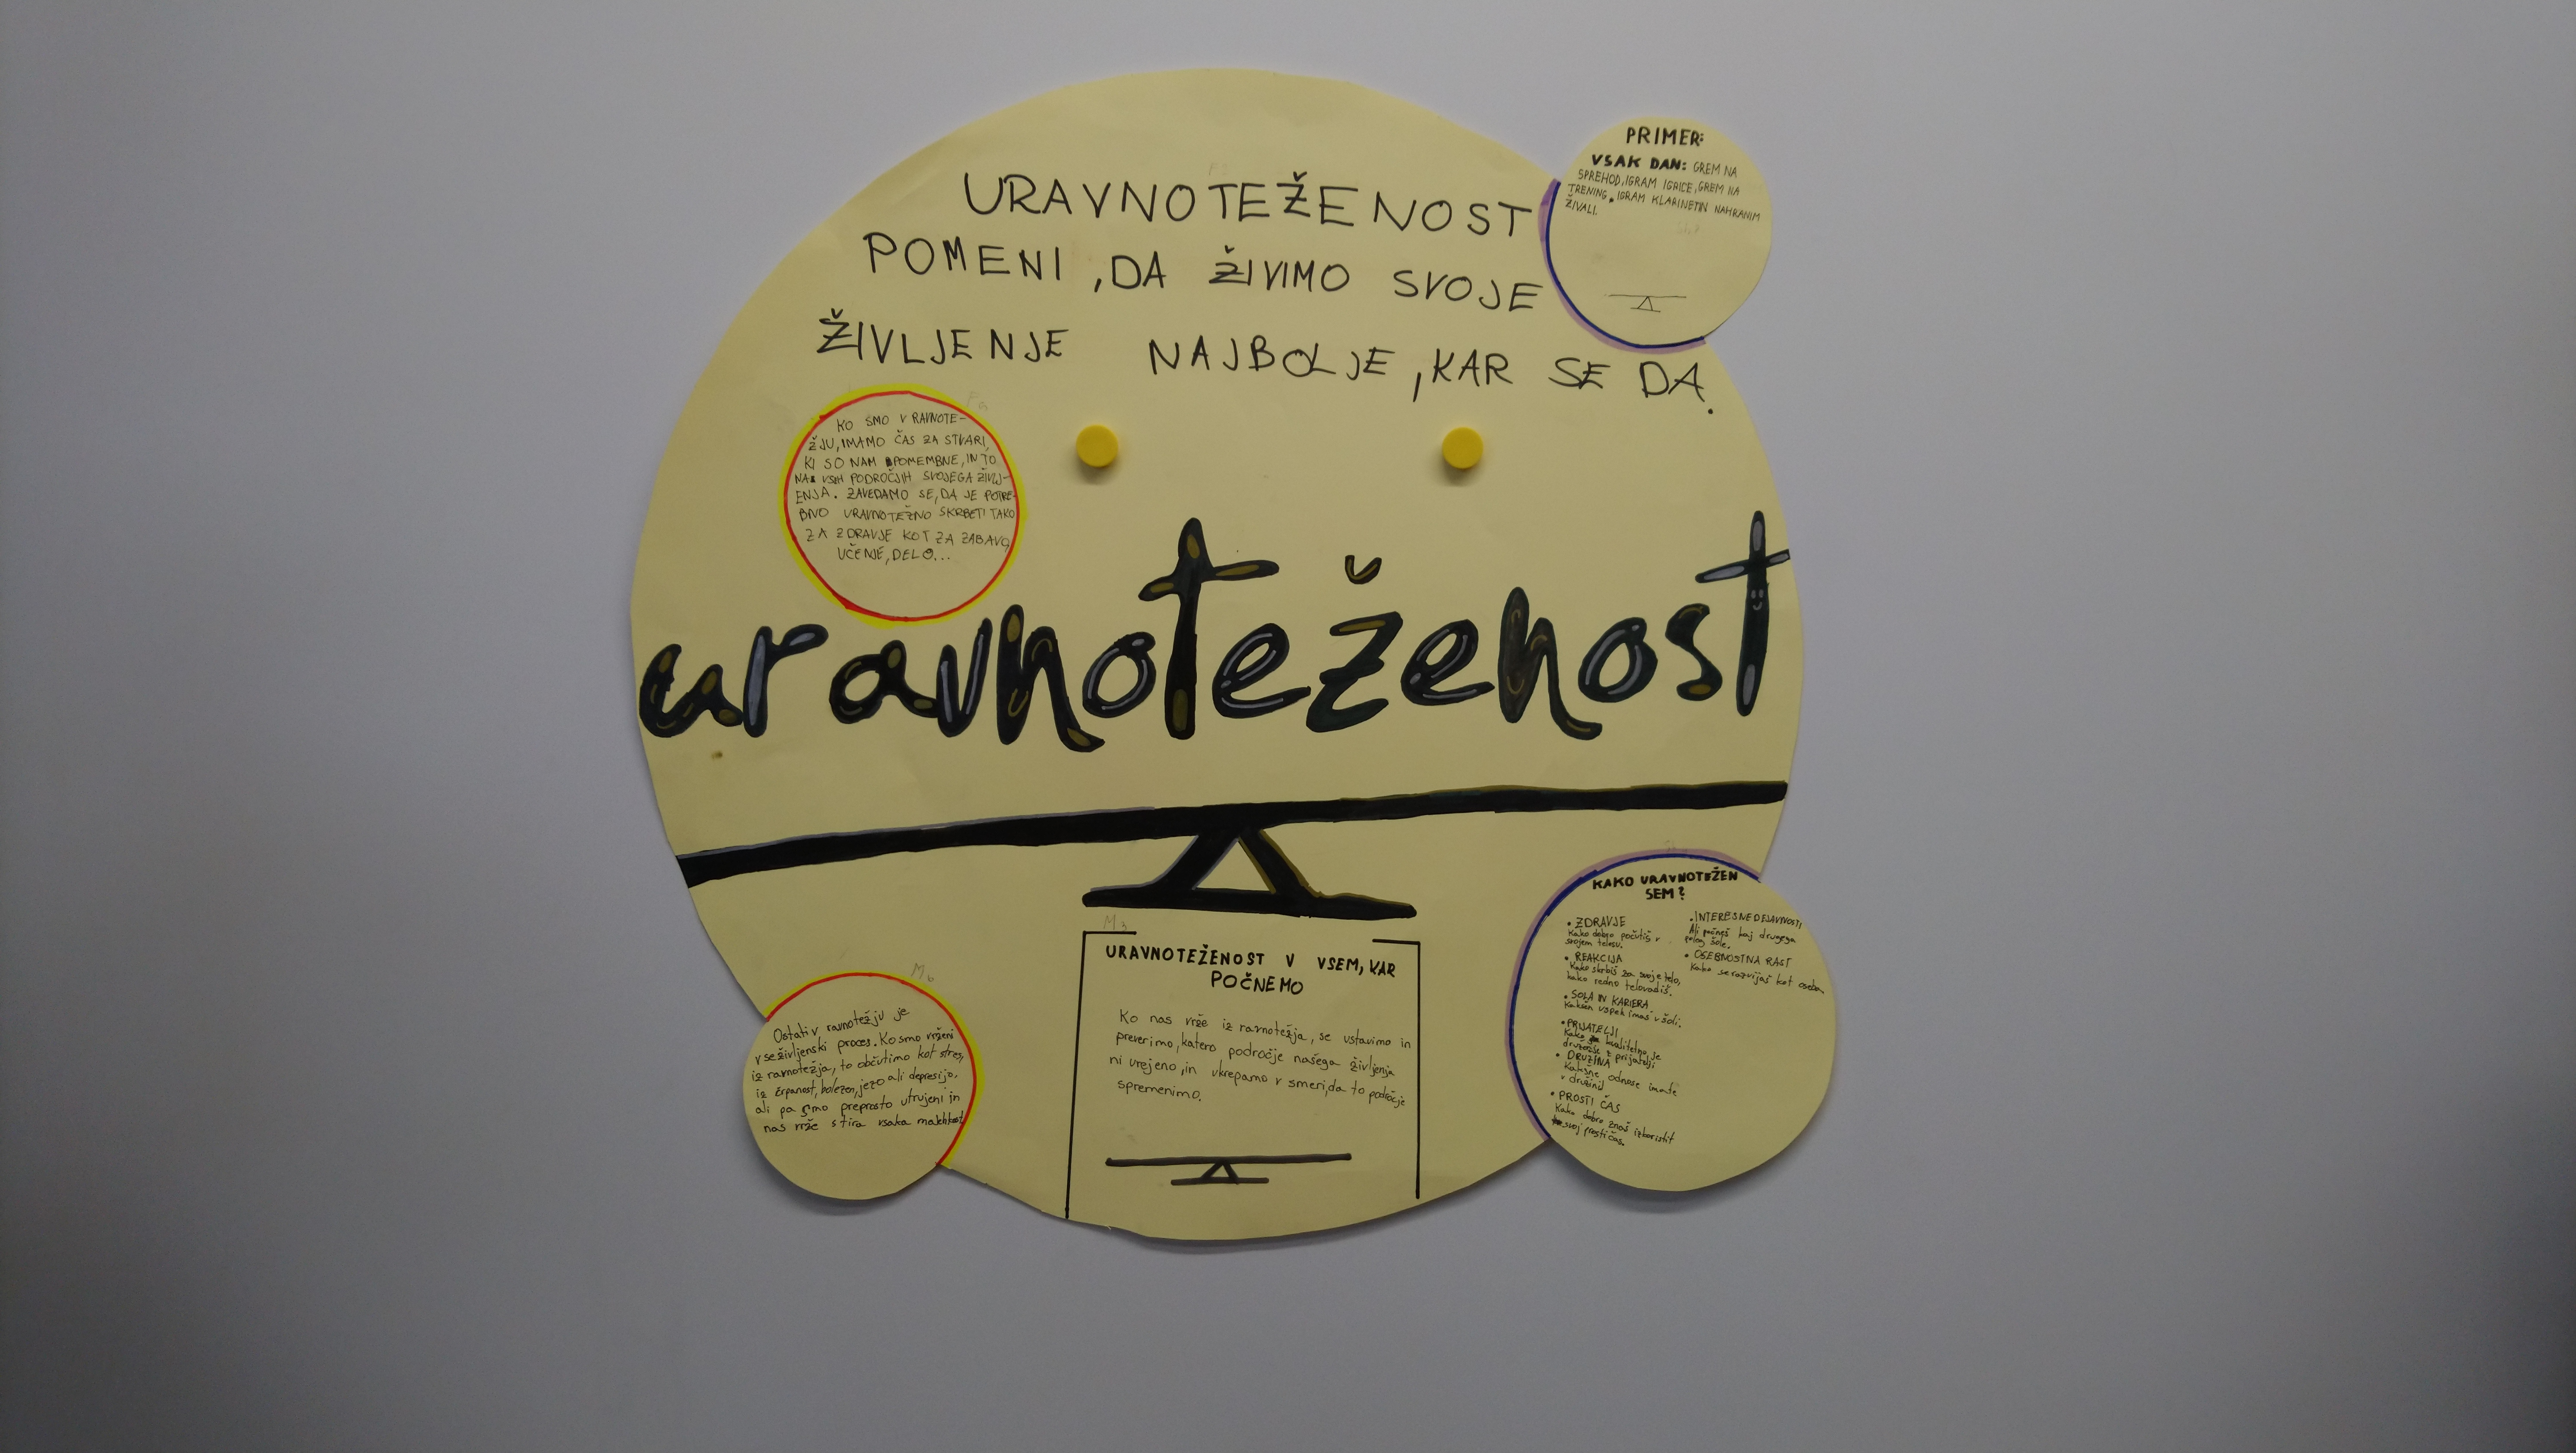 URAVNOTEŽENOST
POMENI, DA ŽIVIMO SVOJE
ŽIVLJENJE NAJBOLJE, KAR SE DA.
PRIMER:
VSAK DAN: GREM NA
SPREHOD, IGRAM IGRICE, GREM NA
TRENING, IGRAM KLARINET IN NAHRANIM
ŽIVALI.
KO SMO V RAVNOTE-
ŽJU, IMAMO ČAS ZA STVARI,
KI SO NAM POMEMBNE, IN TO
NA VSEH PODROČJIH SVOJEGA ŽIVLJ-
ENJA. ZAVEDAMO SE, DA JE POTRE-
BNO URAVNOTEŽNO SKRBETI TAKO
ZA ZDRAVJE KOT ZA ZABAVO,
UČENJE, DELO...
uravnoteženost
M3
URAVNOTEŽENOST V VSEM, KAR
POČNEMO
Ko nas vrže iz ravnotežja, se ustavimo in
preverimo, katero področje našega življenja
ni urejeno, in ukrepamo v smeri, da to področje
spremenimo.
M6
Ostati v ravnotežju je
vseživljenski proces. Ko smo vrženi
iz ravnotežja, to občutimo kot stres,
izčrpanost, bolezen, jezo ali depresijo,
ali pa smo preprosto utrujeni in
nas vrže s tira vsaka malenkost
KAKO URAVNOTEŽEN
SEM?
• ZDRAVJE
Kako dobro počutiš v
svojem telesu.
• REAKCIJA
Kako skrbiš za svoje telo,
kako redno telovadiš.
• ŠOLA IN KARIERA
Kakšen uspeh imaš v šoli.
• PRIJATELJI
Kako kvalitetno se
družiš z prijatelji
• DRUŽINA
Kakšne odnose imate
v družini
• PROSTI ČAS
Kako dobro znaš izkoristit
svoj prosti čas.
• INTERESNE DEJAVNOSTI
Ali počneš kaj drugega
poleg šole.
• OSEBNOSTNA RAST
Kako se razvijaš kot oseba